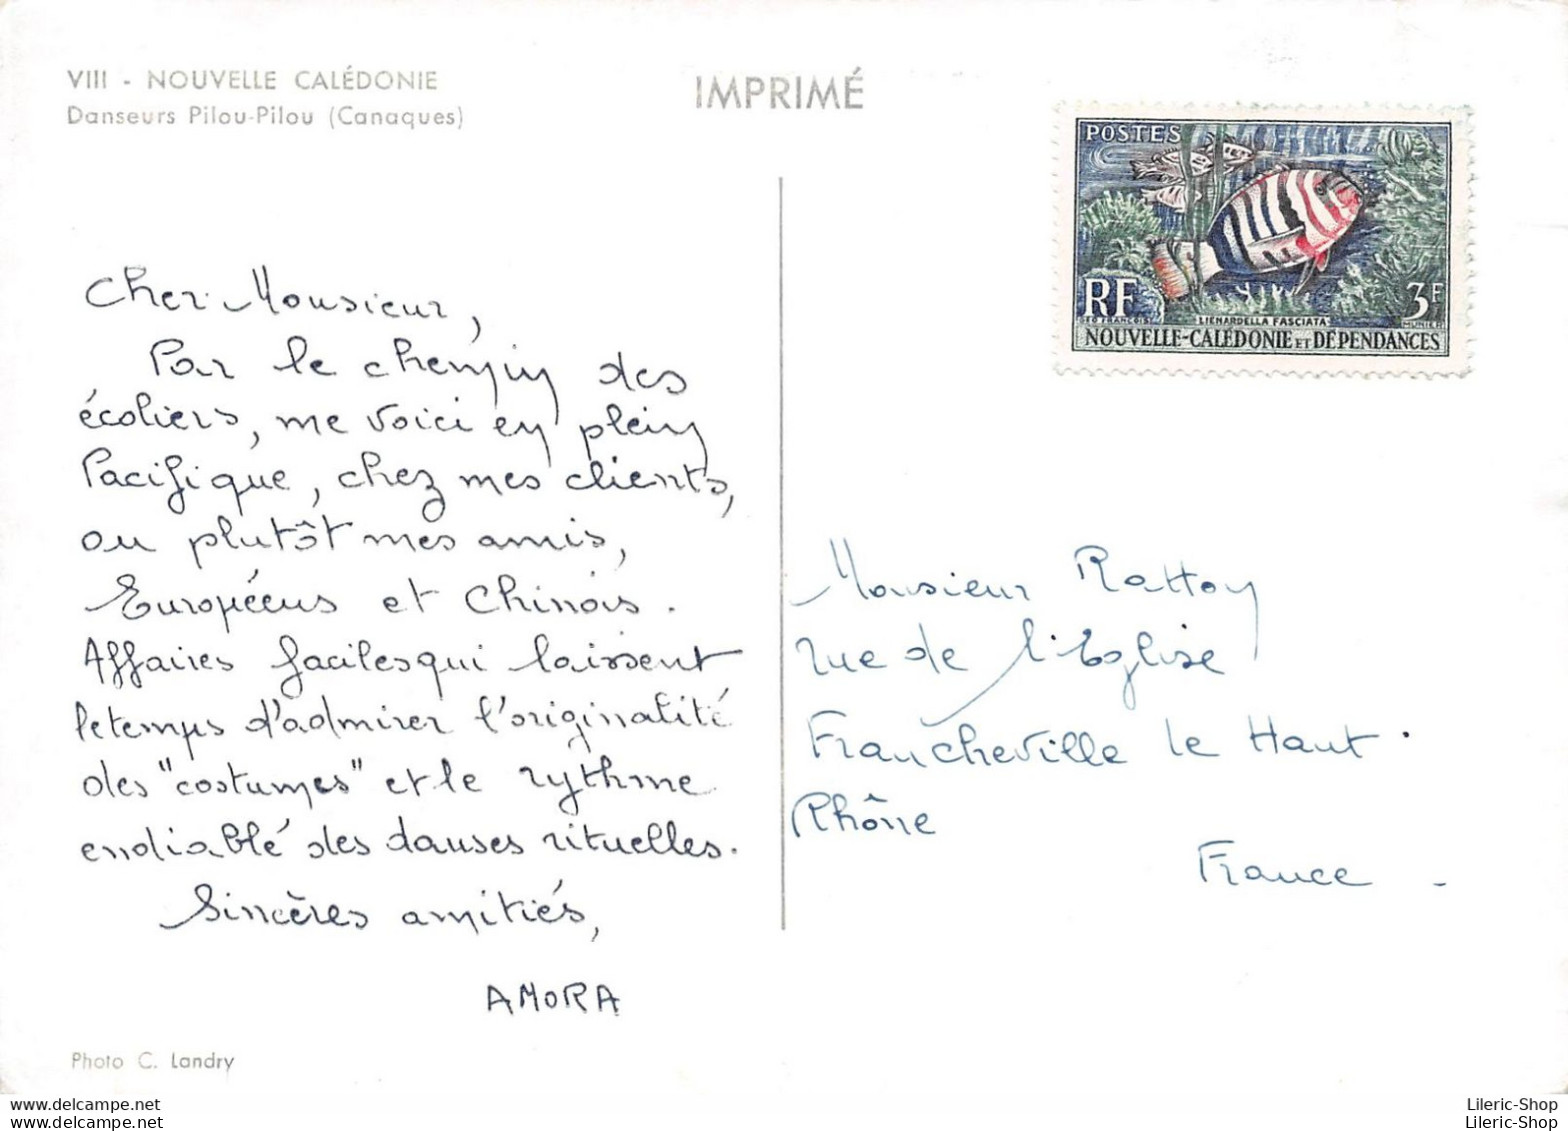 VIII - NOUVELLE CALÉDONIE
Danseurs Pilou-Pilou (Canaques)
IMPRIMÉ
POSTES
RF
3F
GEO FRANÇOIS
LIENARDELLA FASCIATA
MUNIER
NOUVELLE-CALÉDONIE ET DÉPENDANCES
Cher Monsieur,
Par le chemin des
écoliers, me voici en plein
Pacifique, chez mes clients,
ou plutôt mes amis,
Européens et Chinois.
Affaires faciles qui laissent
le temps d'admirer l'originalité
des "costumes" et le rythme
endiablé des danses rituelles.
Sincères amitiés,
AMORA
Monsieur Rattoy
rue de l'Eglise
Francheville le Haut.
Rhône
France
Photo C. Landry
www.delcampe.net
www.delcampe.net
Lileric-Shop
Lileric-Shop